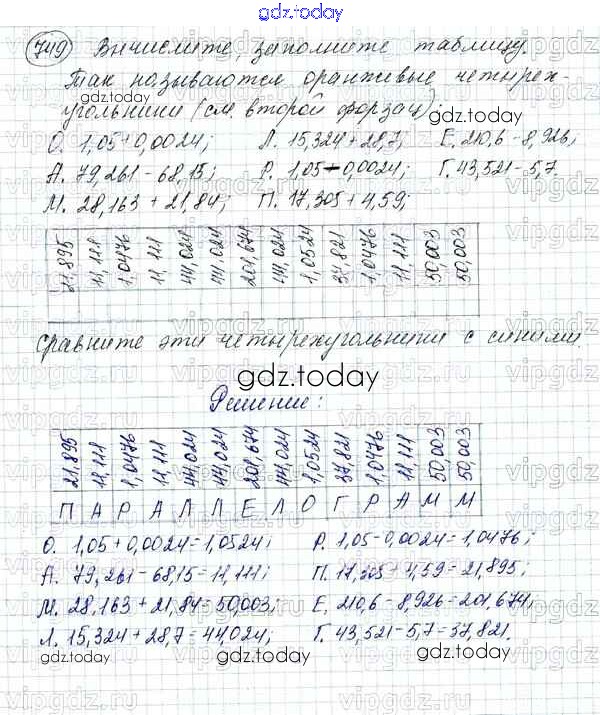 gdz.today
749 Вычислите, заполните таблицу.
Так называются оранжевые четырех-
угольники (см. второй форзац) gdz.today
О. 1,05+0,0024; Л. 15,324+28,7; Е. 210,6-8,926;
А. 79,261-68,15; Р. 1,05-0,0024; Г. 43,521-5,7.
М. 28,163+21,84; П. 17,305+4,59;
21,895 11,111 1,0476 11,111 44,024 44,024 201,674 44,024 1,0524 37,821 1,0476 11,111 50,003 50,003
сравните эти четырехугольники с синими
gdz.today
Решение:
21,895 11,111 1,0476 11,111 44,024 44,024 201,674 44,024 1,0524 37,821 1,0476 11,111 50,003 50,003
П А Р А Л Л Е Л О Г Р А М М
О. 1,05+0,0024=1,0524; Р. 1,05-0,0024=1,0476;
А. 79,261-68,15=11,111; П. 17,305+4,59=21,895;
М. 28,163+21,84=50,003; Е. 210,6-8,926=201,674;
Л. 15,324+28,7=44,024; Г. 43,521-5,7=37,821.
gdz.today gdz.today